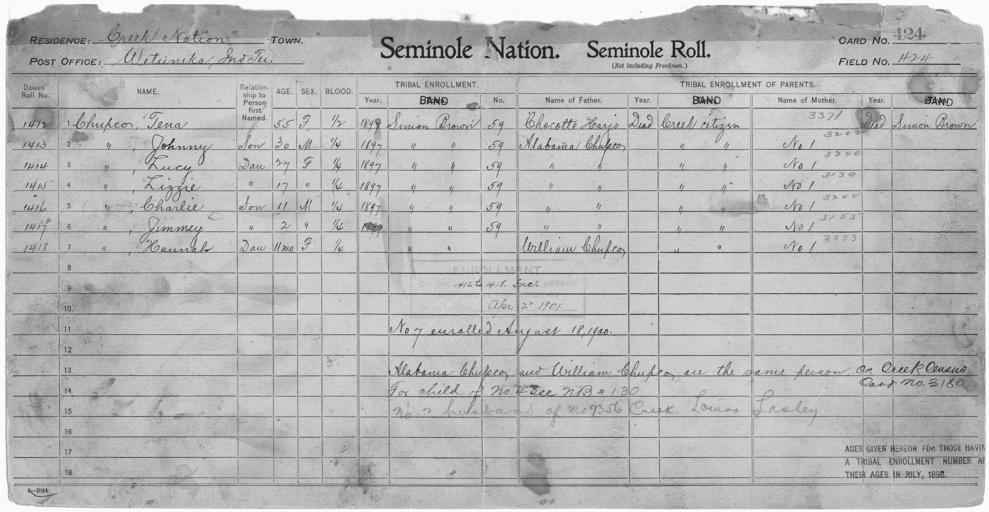 RESIDENCE: Creek Nation TOWN.
POST OFFICE: Wetumka, Ind Ter.
Seminole Nation. Seminole Roll.
(Not including Freedmen.)
CARD NO. 424
FIELD NO. 424
Dawes' Roll No. NAME. Relationship to Person first Named. AGE. SEX. BLOOD. TRIBAL ENROLLMENT. TRIBAL ENROLLMENT OF PARENTS.
Year. BAND No. Name of Father. Year. BAND Name of Mother. Year. BAND
3371
1412 1 Chupco, Tena 55 F ½ 1897 Simon Brown 59 Chocotte Harjo Dead Creek citizen Dead Simon Brown
1413 2 " , Johnny Son 30 M ¼ 1897 " " 59 Alabama Chupco " " No 1
1414 3 " , Lucy Dau 27 F ¼ 1897 " " 59 " " " " No 1
1415 4 " , Lizzie " 17 " ¼ 1897 " " 59 " " " " No 1
1416 5 " , Charlie Son 11 M ¼ 1897 " " 59 " " " " No 1
1417 6 " , Jimmey " 2 " ¼ " " 59 " " " " No 1
1418 7 " , Hannah Dau 11mo F ¼ " " William Chupco " " No 1
8
ENROLLMENT
9 1412 to 1418 Inc.
HEREON
10 Apr 2" 1901
11 No 7 enrolled August 18, 1900.
12
13 Alabama Chupco and William Chupco are the same person, on Creek Census
Card No. 3160
14 For child of No. 4 see NB # 130
15 No 2 husband of no 9356 Creek Louisa Lasley
16
17
18
AGES GIVEN HEREON FOR THOSE HAVIN
A TRIBAL ENROLLMENT NUMBER A
THEIR AGES IN JULY, 1898.
6-1014